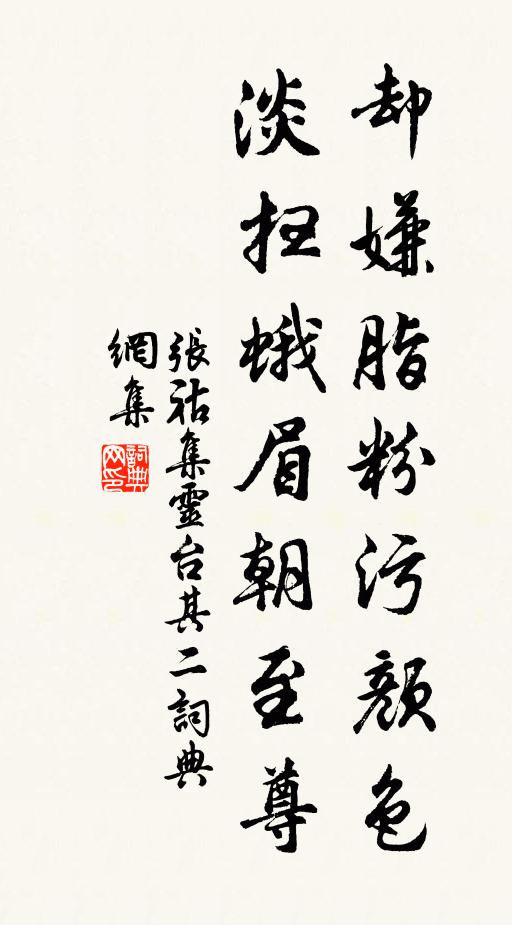 却嫌脂粉污顏色
淡扫蛾眉朝至尊
張祜集靈台其二詞典
網集
詞典
网印